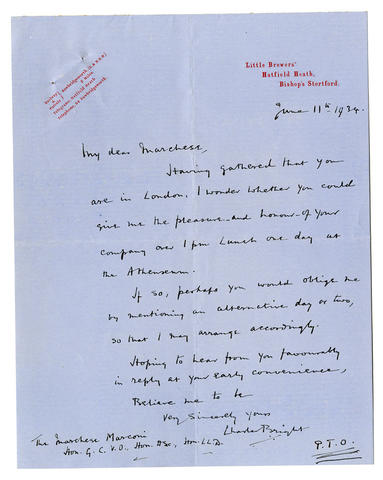 Little Brewers'
Hatfield Heath,
Bishop's Stortford.
June 11th 1934.
My dear Marchese,
Having gathered that you
are in London, I wonder whether you could
give me the pleasure—and honour—of your
company over 1 pm Lunch one day at
the Athenaeum.
If so, perhaps you would oblige me
by mentioning an alternative day or two,
so that I may arrange accordingly.
Hoping to hear from you favourably
in reply at your early convenience,
Believe me to be
Very Sincerely Yours
Charles Bright
The Marchese Marconi
Hon. G.C.V.O., Hon. DSc, Hon. LL.D.
P.T.O.